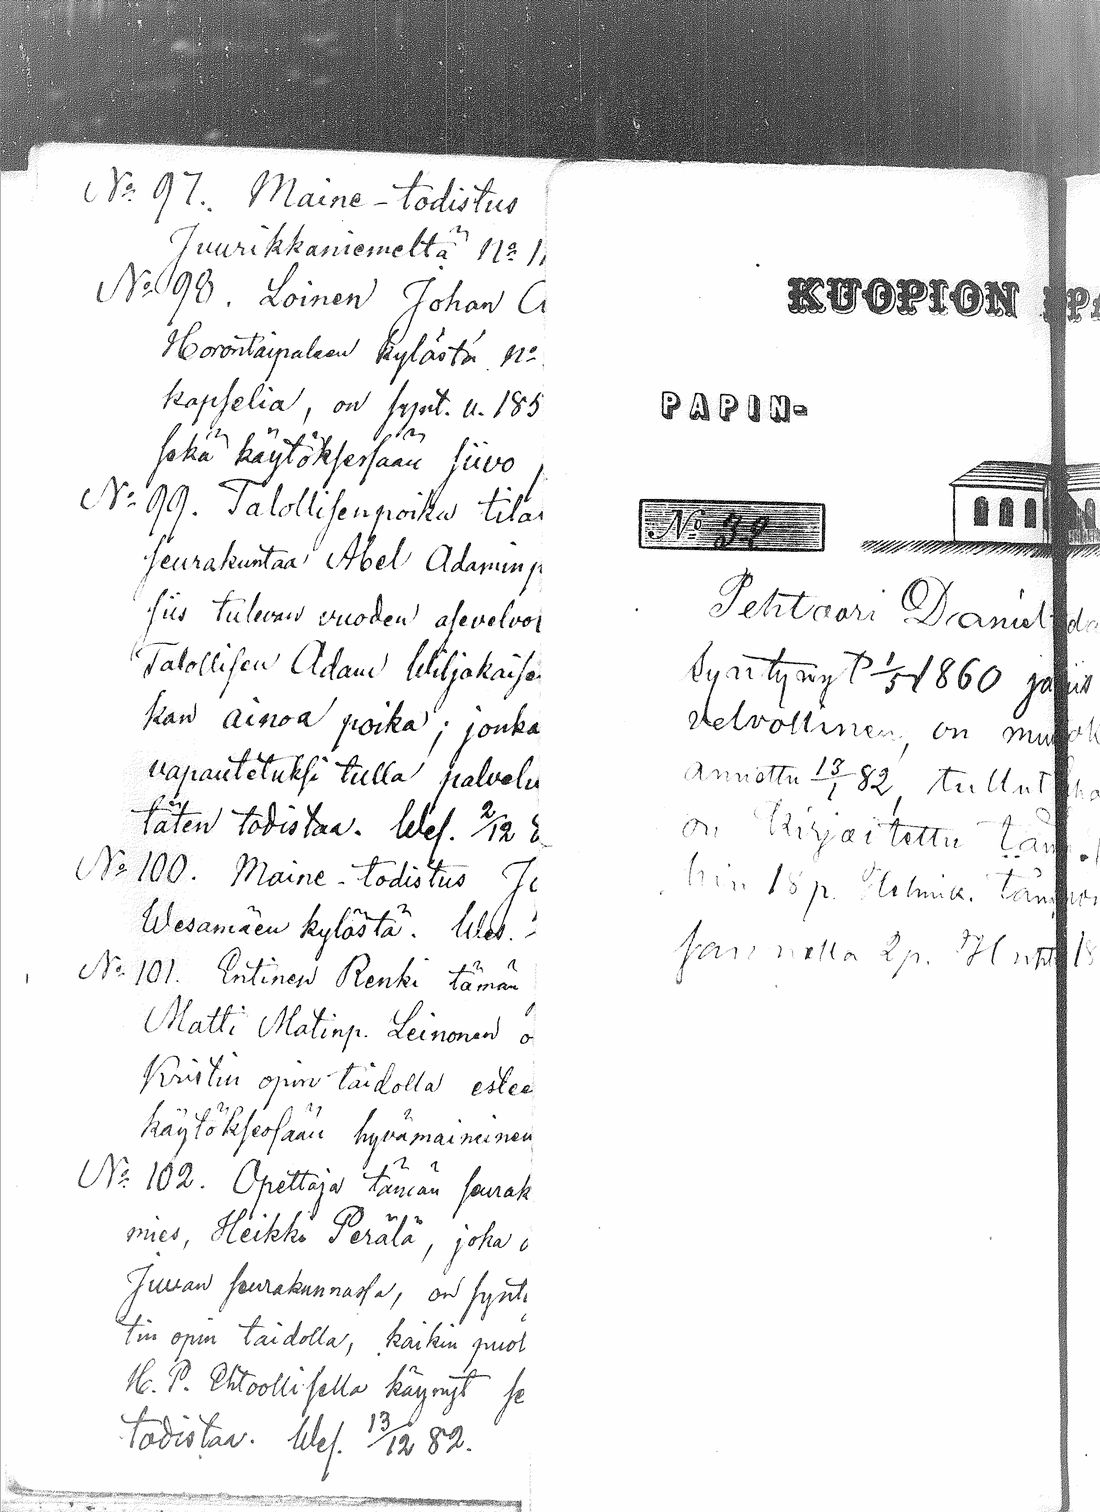 No 97. Maine-todistus
Juurikkaniemeltä No 1
No 98. Loinen Johan
Horontaipaleen kylästä No
kapselia, on synt. v. 185
sekä käytöksessään siivo
No 99. Talollisenpoika
seurakuntaa Abel Adaminp
siis tulevan vuoden asevelvol
Talollisen Adam Wiljakaise
kan ainoa poika; jonka
vapautetuksi tulla palvelu
täten todistaa. Wes. 2/12
No 100. Maine-todistus
Wesamäen kylästä. Wes.
No 101. Entinen Renki tämän
Matti Matinp. Leinonen o
Kristin opin taidolla estee
käytöksessään hyvämaininen
No 102. Opettaja tämän seurak
mies, Heikki Perälä, joka
Juvan seurakunnassa, on synt
tin opin taidolla, kaikin puol
H. P. Ehtoollisella käynyt se
todistaa. Wes. 13/12 82.
KUOPION
PAPIN-
No 32
Pehtoori Daniel
syntynyt 1/5 1860
velvollinen, on
annettu 13/1 82, tullut
on kirjoitettu
hin 18 p. Helmik.
sannella 2 p. Huht 18